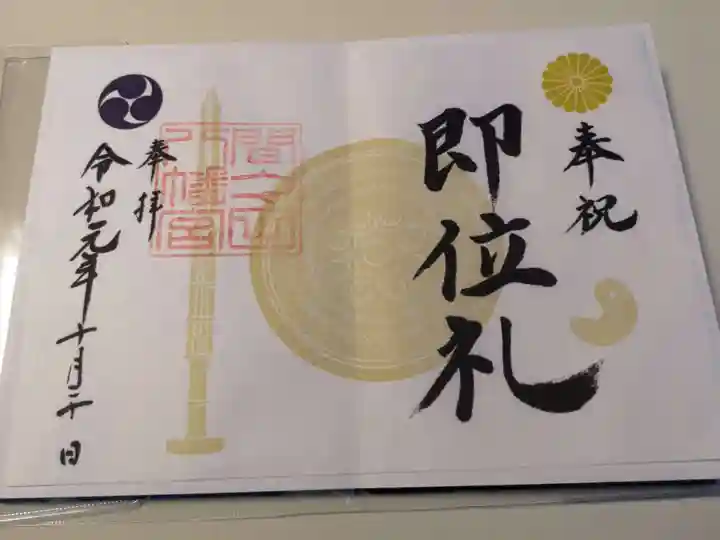 奉祝
即位礼
奉拝
令和元年十月二十日
間々田
八幡宮